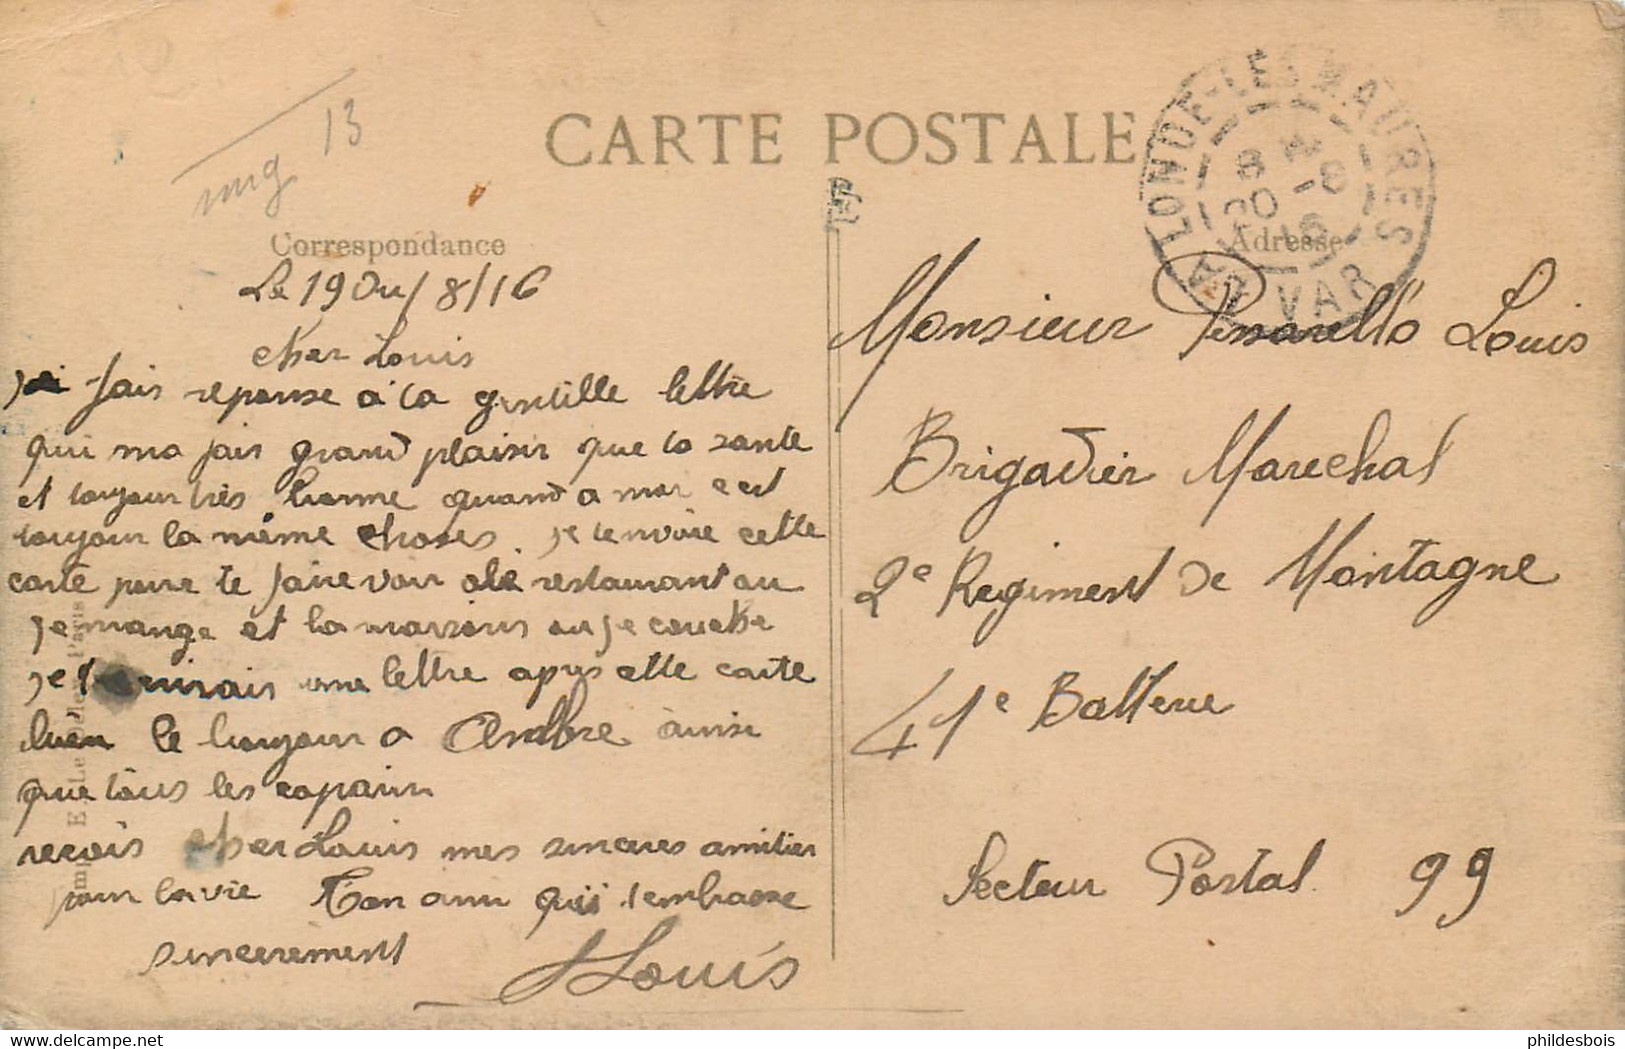 13
CARTE POSTALE
Correspondance
Adresse
LA LONDE-LES-MAURES
VAR
Le 19 Du / 8 / 16
cher Louis
je fais reponse a la gentille lettre
qui ma fais grand plaisir que ta sante
et toujour très bonne quand a moi c est
toujour la même choses. je tenvoie cette
carte pour te faire voir ole restaurant ou
je mange et la maisons ou je couche
je une lettre apres cette carte
bien le bonjour a Andre ainsi
que tous les copain
recois cher Louis mes sinceres amitier
pour la vie Ton ami qui tembrasse
sincerement
Louis
Monsieur Louis
Brigadier Marechal
2e Regiment de Montagne
41e Batterie
Secteur Postal 99
www.delcampe.net
philidesbois